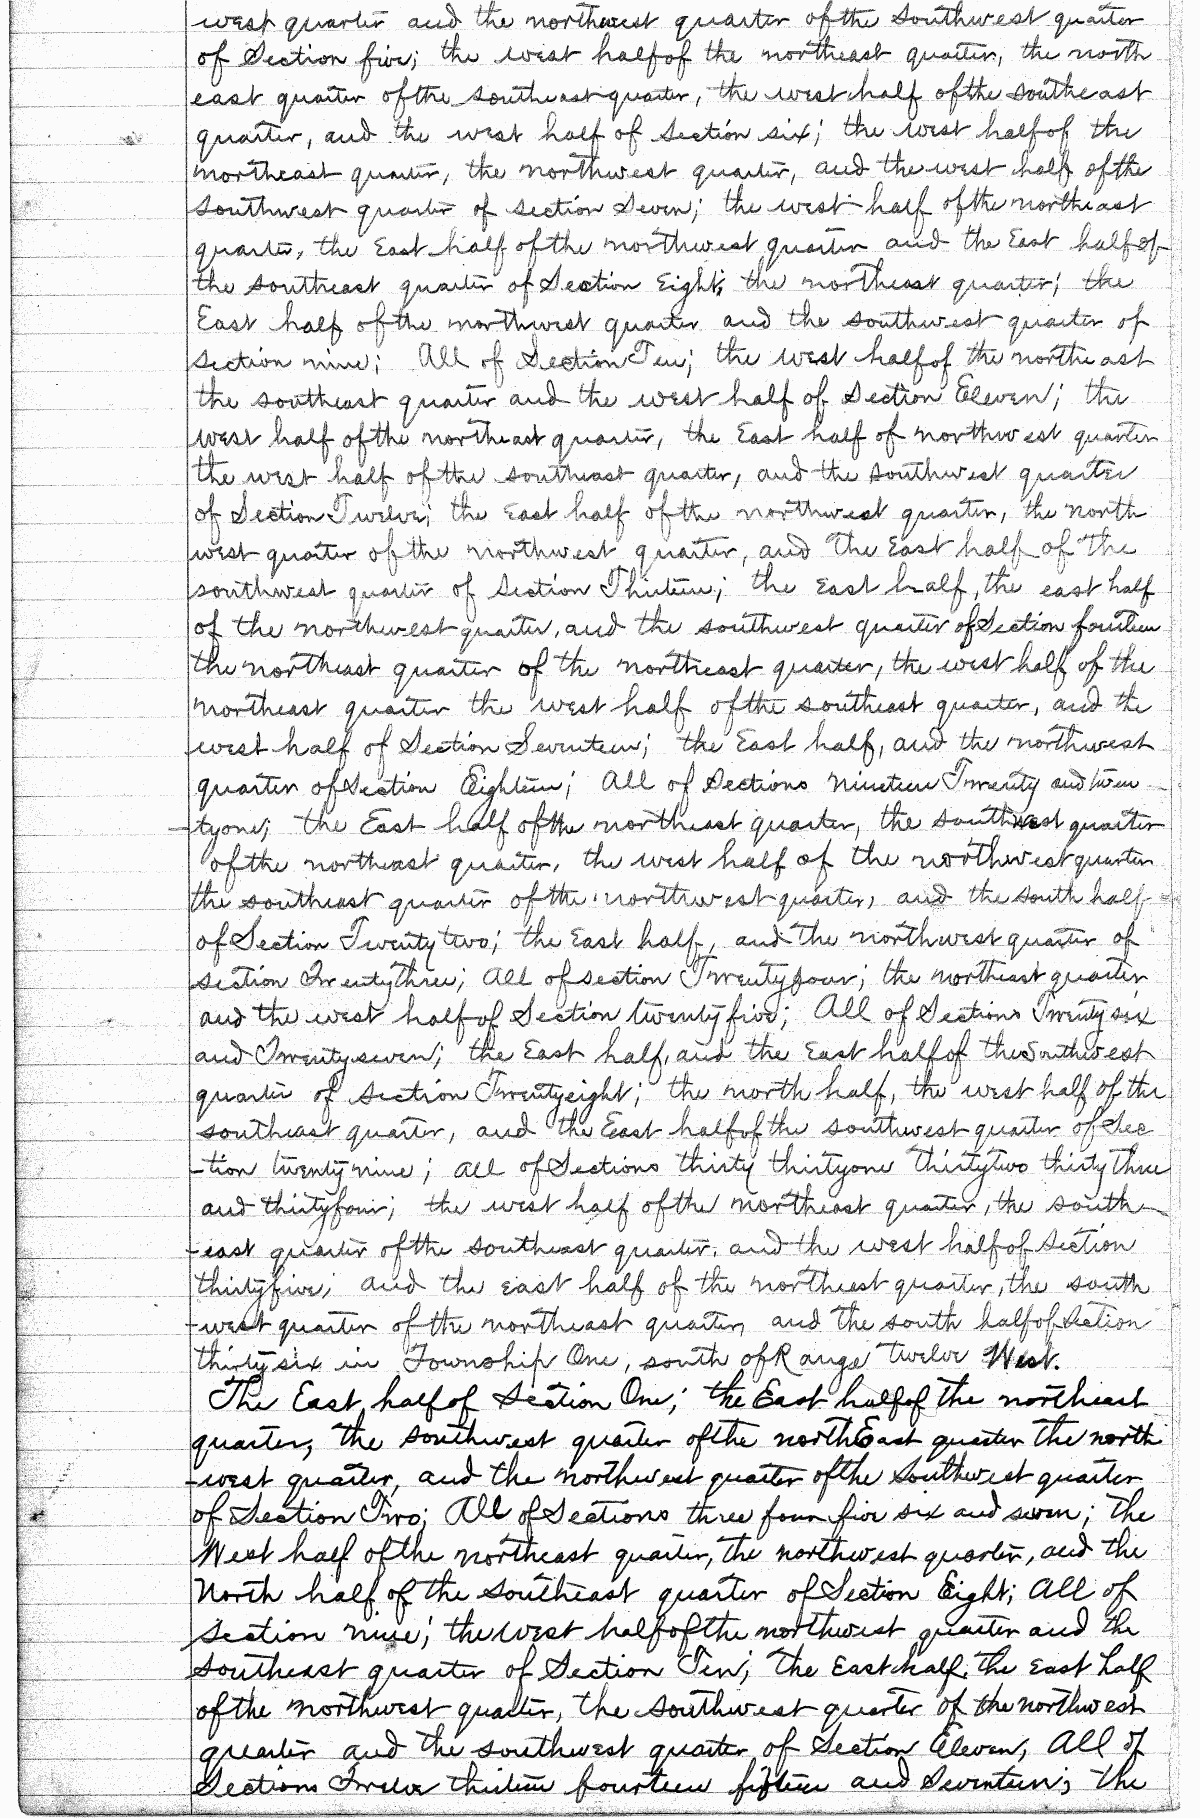 west quarter and the northwest quarter of the southwest quarter
of Section five; the west half of the northeast quarter, the north
east quarter of the southeast quarter, the west half of the southeast
quarter, and the west half of Section six; the west half of the
northeast quarter, the northwest quarter, and the west half of the
southwest quarter of section Seven; the west half of the northeast
quarter, the East half of the northwest quarter and the East half of
the southeast quarter of Section Eight; the northeast quarter; the
East half of the northwest quarter and the southwest quarter of
section nine; All of Section Ten; the west half of the northeast
the southeast quarter and the west half of Section Eleven; the
west half of the northeast quarter, the East half of northwest quarter
the west half of the southeast quarter, and the southwest quarter
of Section Twelve; the East half of the northwest quarter, the north
west quarter of the northwest quarter, and the East half of the
southwest quarter of Section Thirteen; the East half, the east half
of the northwest quarter, and the southwest quarter of Section fourteen
the northeast quarter of the northeast quarter, the west half of the
northeast quarter the west half of the southeast quarter, and the
west half of Section Seventeen; the East half, and the northwest
quarter of Section Eighteen; All of Sections nineteen Twenty and twen
-tyone; the East half of the northeast quarter, the southwest quarter
of the northeast quarter, the west half of the northwest quarter
the southeast quarter of the northwest quarter, and the south half
of Section Twentytwo; the East half, and the northwest quarter of
section Twentythree; All of section Twentyfour; the northeast quarter
and the west half of Section twentyfive; All of Sections Twentysix
and Twentyseven; the East half, and the East half of the Southwest
quarter of section Twentyeight; the north half, the west half of the
southeast quarter, and the East half of the southwest quarter of Sec
-tion twentynine; all of Sections thirty thirtyone thirtytwo thirtythree
and thirtyfour; the west half of the northeast quarter, the south-
-east quarter of the southeast quarter, and the west half of section
thirtyfive; and the east half of the northeast quarter, the south
-west quarter of the northeast quarter, and the south half of Section
thirtysix in Township One, south of Range twelve West.
The East half of Section One; the East half of the northeast
quarter, the southwest quarter of the northEast quarter the north
-west quarter, and the northwest quarter of the southwest quarter
of Section Two; All of Sections three four five six and seven; the
West half of the northeast quarter, the northwest quarter, and the
North half of the southeast quarter of Section Eight; All of
Section nine; the west half of the northwest quarter and the
southeast quarter of Section Ten; the East half, the East half
of the northwest quarter, the southwest quarter of the northwest
quarter and the southwest quarter of Section Eleven, All of
Sections Twelve thirteen fourteen fifteen and Seventeen; the